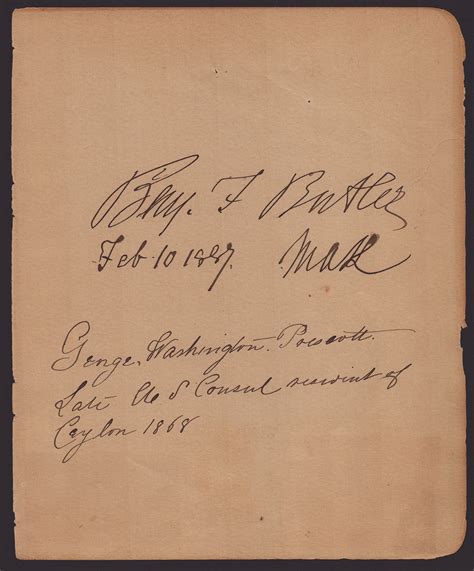 Benj. F Butler
Feb 10 1887. Mass
George. Washington. Prescott.
Late U S Consul resident of
Ceylon 1868